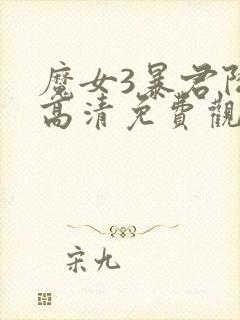 魔女3暴君降
高清免費觀
宋九